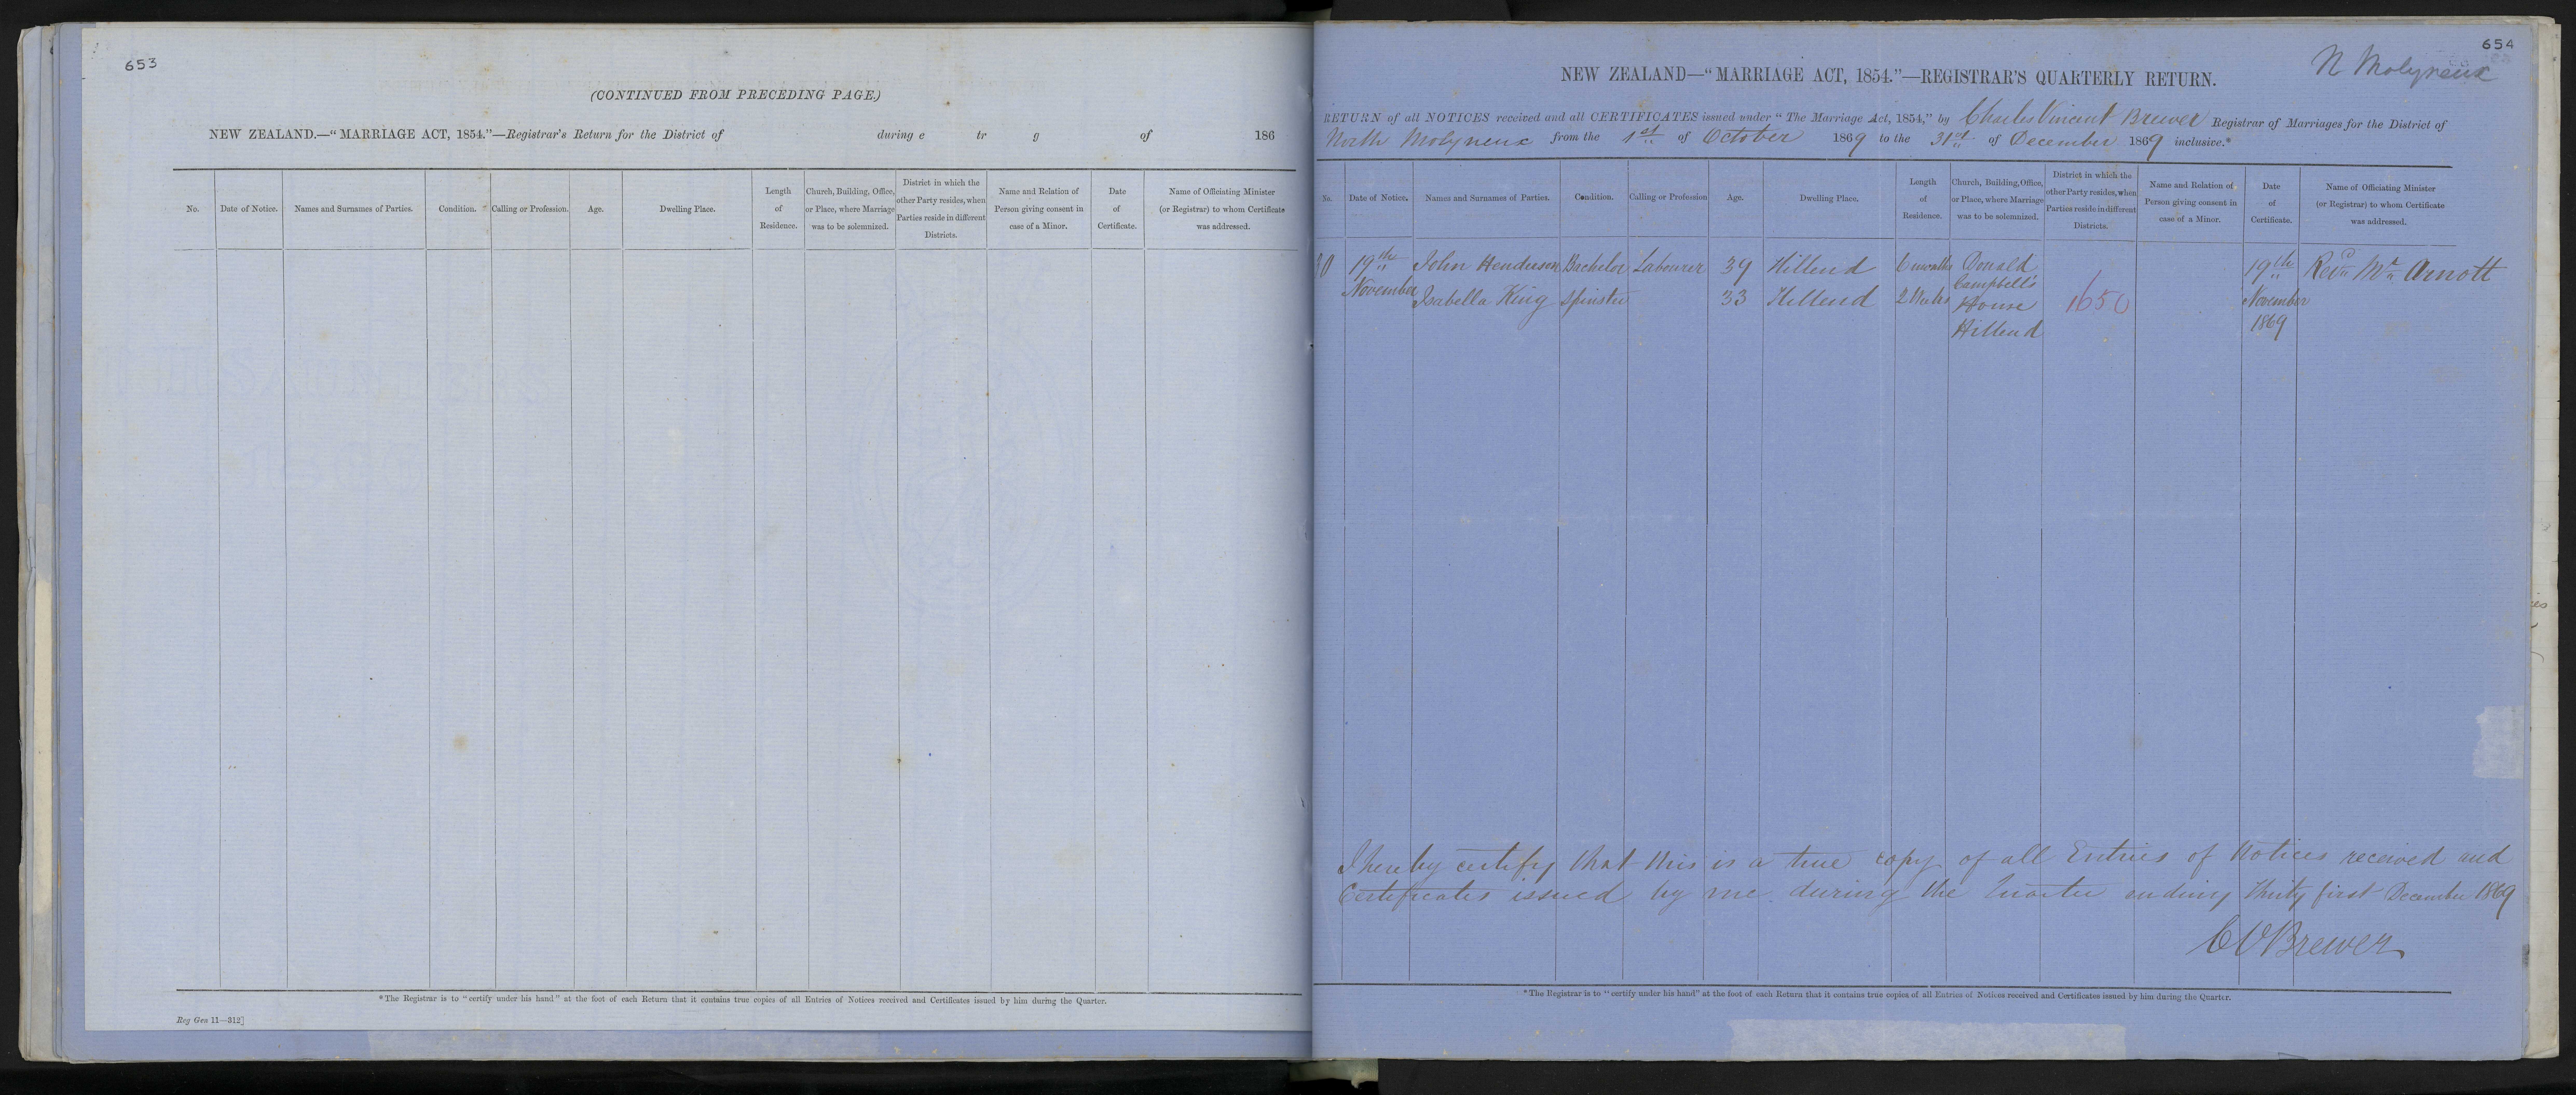 653
(CONTINUED FROM PRECEDING PAGE.)
NEW ZEALAND.—"MARRIAGE ACT, 1854."—Registrar's Return for the District of during e tr g of 186
No. Date of Notice. Names and Surnames of Parties. Condition. Calling or Profession. Age. Dwelling Place. Length of Residence. Church, Building, Office, or Place, where Marriage was to be solemnized. District in which the other Party resides, when Parties reside in different Districts. Name and Relation of Person giving consent in case of a Minor. Date of Certificate. Name of Officiating Minister (or Registrar) to whom Certificate was addressed.
*The Registrar is to "certify under his hand" at the foot of each Return that it contains true copies of all Entries of Notices received and Certificates issued by him during the Quarter.
Reg Gen 11—312]
654
N Molyneux
NEW ZEALAND—"MARRIAGE ACT, 1854."—REGISTRAR'S QUARTERLY RETURN.
RETURN of all NOTICES received and all CERTIFICATES issued under "The Marriage Act, 1854," by Charles Vincent Brewer Registrar of Marriages for the District of
North Molyneux from the 1st of October 1869 to the 31st of December 1869 inclusive.*
No. Date of Notice. Names and Surnames of Parties. Condition. Calling or Profession Age. Dwelling Place. Length of Residence. Church, Building, Office, or Place, where Marriage was to be solemnized. District in which the other Party resides, when Parties reside in different Districts. Name and Relation of Person giving consent in case of a Minor. Date of Certificate. Name of Officiating Minister (or Registrar) to whom Certificate was addressed.
19th John Henderson Bachelor Labourer 39 Hillend 6 months Donald 19th Revd Mr Arnott
November Isabella King Spinster 33 Hillend 2 Weeks Campbell's House 1650 November
Hillend 1869
I hereby certify that this is a true copy of all Entries of Notices received and
Certificates issued by me during the Quarter ending thirty first December 1869
C V Brewer
*The Registrar is to "certify under his hand" at the foot of each Return that it contains true copies of all Entries of Notices received and Certificates issued by him during the Quarter.